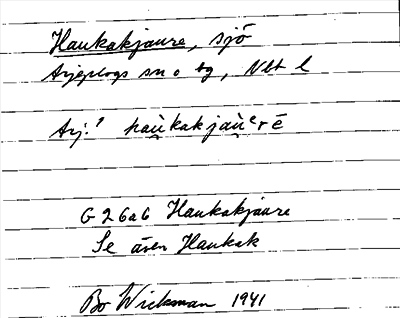 Haukakjaure, sjö
Arjeplogs sn o tg, Vbt l
Arj.? hau̯kakjau̯ᵉrē
G 26a6 Haukakjaure
Se även Haukak
Bo Wickman 1941